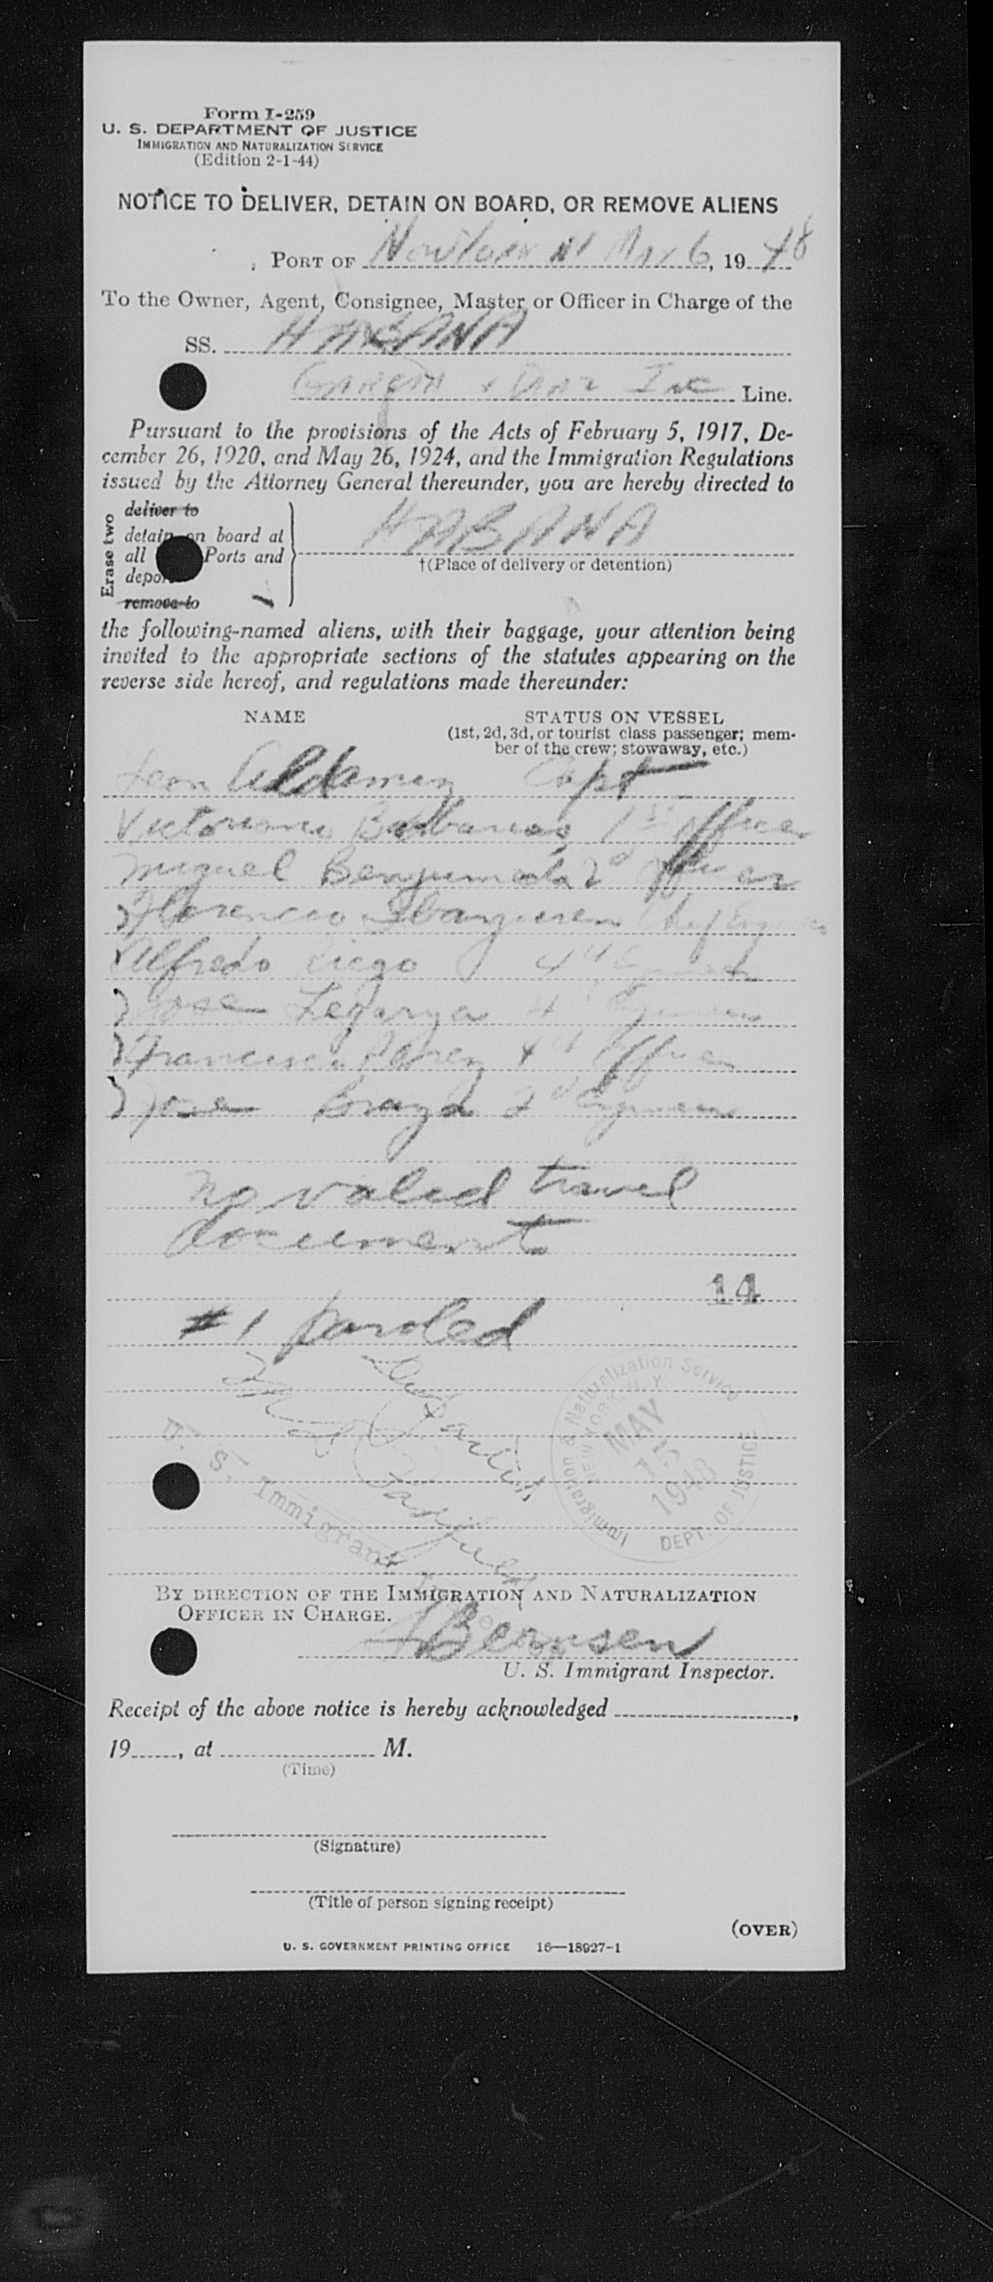 Form I-259
U. S. DEPARTMENT OF JUSTICE
IMMIGRATION AND NATURALIZATION SERVICE
(Edition 2-1-44)
NOTICE TO DELIVER, DETAIN ON BOARD, OR REMOVE ALIENS
PORT OF New York NY May 6, 1948
To the Owner, Agent, Consignee, Master or Officer in Charge of the
SS. HABANA
Garcia & Diaz Inc Line.
Pursuant to the provisions of the Acts of February 5, 1917, De-
cember 26, 1920, and May 26, 1924, and the Immigration Regulations
issued by the Attorney General thereunder, you are hereby directed to
Erase two
deliver to
detain on board at
all Ports and
depor
remove to
HABANA
†(Place of delivery or detention)
the following-named aliens, with their baggage, your attention being
invited to the appropriate sections of the statutes appearing on the
reverse side hereof, and regulations made thereunder:
NAME STATUS ON VESSEL
(1st, 2d, 3d, or tourist class passenger; mem-
ber of the crew; stowaway, etc.)
Leon Aldamiz Capt
Victoriano 1st officer
Miguel Bengumeda 2d officer
Florencio Ibarguren Chief Engineer
Alfredo Diego 4th Engineer
Jose Legarza 4 Engineer
Francisco Perez 4th Officer
Jose 2d Engineer
no valid travel
document
14
#1 paroled
Immigration & Naturalization Service
NEW YORK, N. Y.
MAY
1948
DEPT. OF JUSTICE
U. S. Immigrant
BY DIRECTION OF THE IMMIGRATION AND NATURALIZATION
OFFICER IN CHARGE.
Bernsen
U. S. Immigrant Inspector.
Receipt of the above notice is hereby acknowledged ,
19 , at M.
(Time)
(Signature)
(Title of person signing receipt)
(OVER)
U. S. GOVERNMENT PRINTING OFFICE 16—18927-1